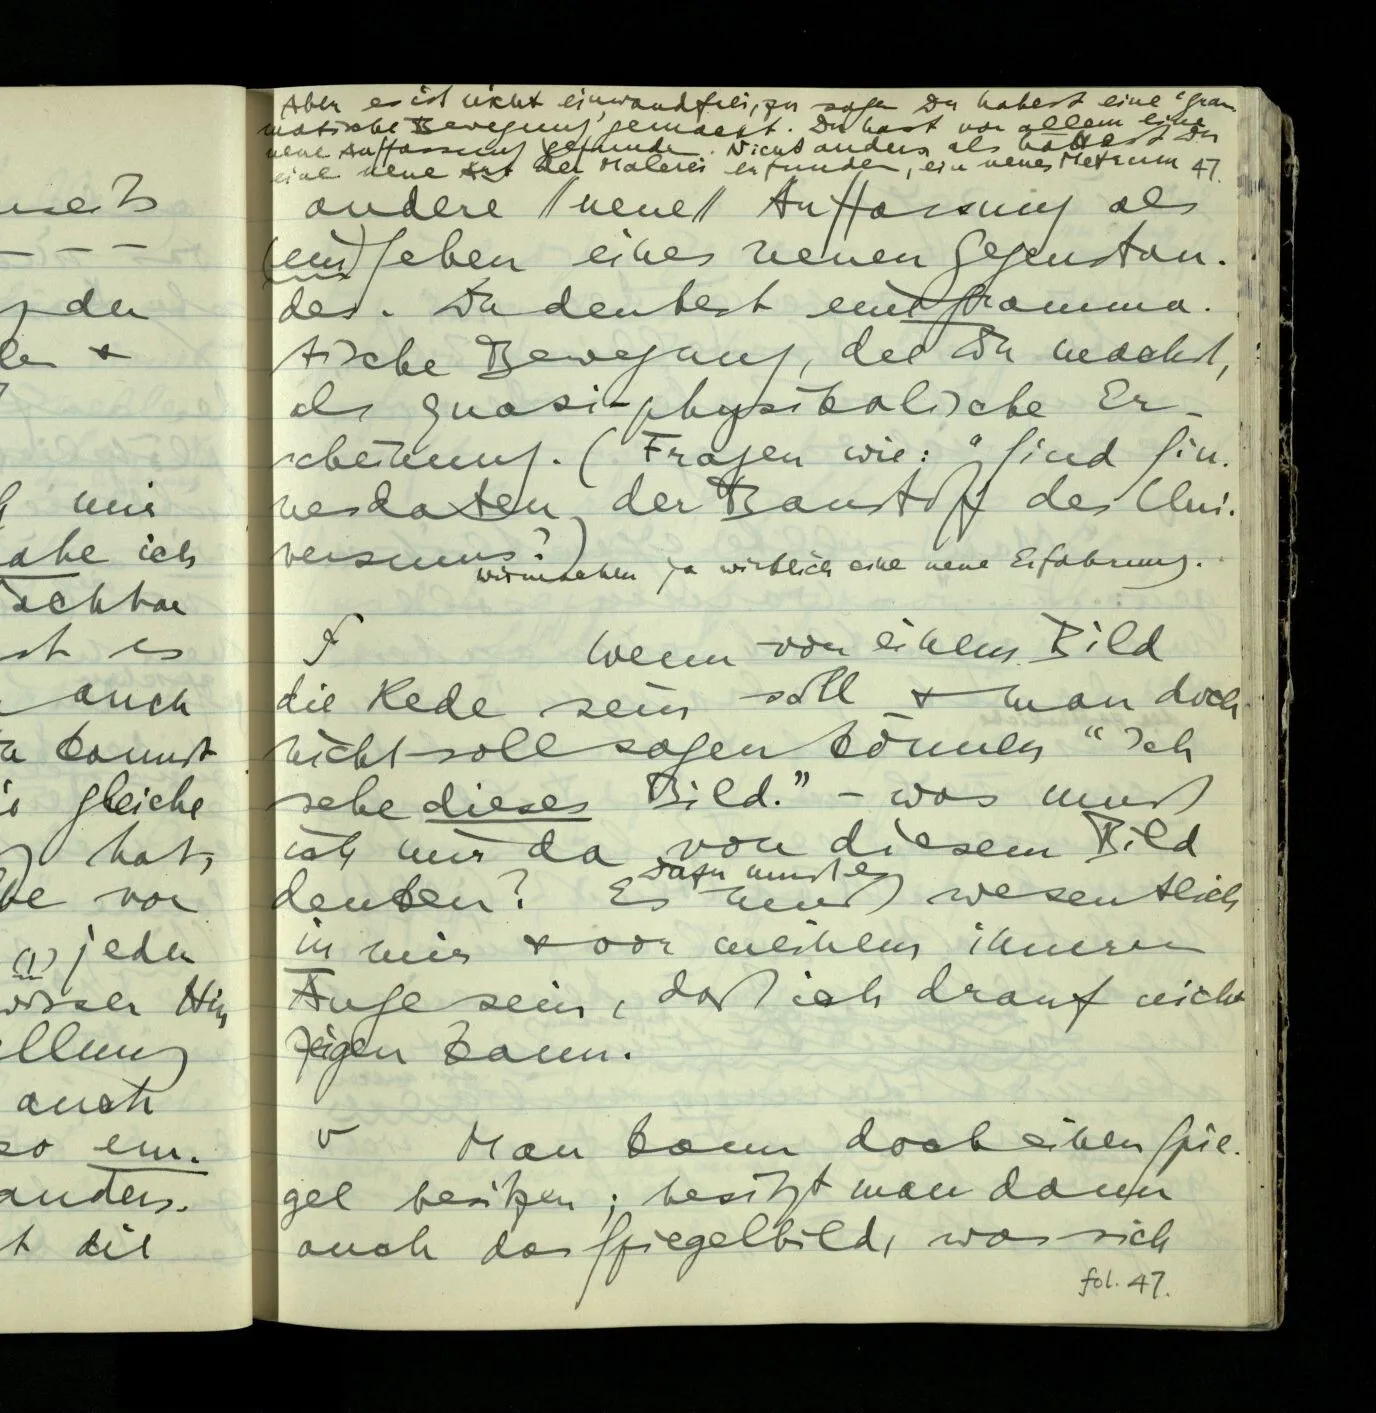 nseits
— — —
g der
le +
h mir
habe ich
Nachbar
st es
auch
Du kannst
die gleiche
hat,
be vor
(1) jeder
gewisser Hin
ellung
auch
so ein.
anders.
t die
Aber es ist nicht einwandfrei, zu sagen Du habest eine "gram
matische Bewegung" gemacht. Du hast vor allem eine
neue Auffassung gefunden. Nicht anders als hättest Du
eine neue Art der Malerei erfunden, ein neues Metrum
47.
andere // neue // Auffassung als
(ein) Sehen eines neuen Gegenstan.
des. Du deutest eine gramma.
tische Bewegung, die Du machst,
als quasi-physikalische Er-
scheinung. (Fragen wie: "Sind Sin.
nesdaten der Baustoff des Uni.
versums?)
wir machen ja wirklich eine neue Erfahrung.
F Wenn von einem Bild
die Rede sein soll & man doch
nicht soll sagen können "ich
sehe dieses Bild." – was muß
ich mir da von diesem Bild
denken? Es muß wesentlich
Dazu mußte
in mir & vor meinem inneren
Auge sein, daß ich drauf nicht
zeigen kann.
v Man kann doch einen Spie.
gel besitzen; besitzt man dann
auch das Spiegelbild, was sich
fol. 47.